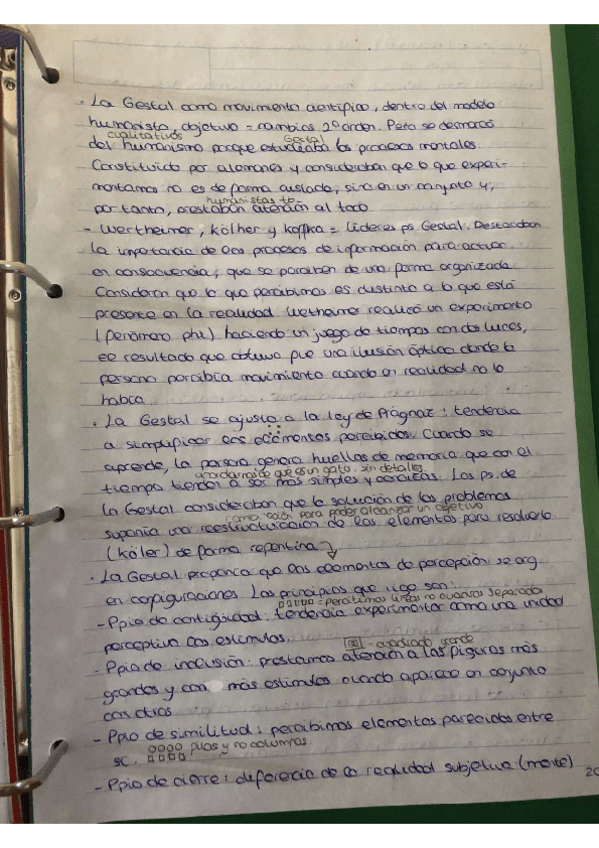 · La Gestal como movimiento científico, dentro del modelo
humanista, objetivo = cambios 2º orden. Pero se desmarca
cualitativos Gestal
del humanismo porque estudiaba los procesos mentales.
Constituido por alemanes y consideraban que lo que experi-
mentamos no es de forma aislada, sino en un conjunto y,
humanistas tb
por tanto, prestaban atención al todo
- Wertheimer, Kölher y Koffka = líderes ps. Gestal. Destacaban
la importancia de los procesos de información para actuar
en consecuencia, que se perciben de una forma organizada.
Consideran que lo que percibimos es distinto a lo que está
presente en la realidad. Wetheimer realizó un experimento
(fenómeno phi) haciendo un juego de tiempos con dos luces,
el resultado que obtuvo fue una ilusión óptica donde la
persona percibía movimiento cuando en realidad no lo
había.
· La Gestal se ajusta a la ley de Prägnaz : tendencia
a simplificar los elementos percibidos. Cuando se
aprende, la persona genera huellas de memoria que con el
acordarme de que es un gato, sin detalles.
tiempo tienden a ser más simples y Las ps. de
la Gestal consideraban que la solución de los problemas
como acción para poder alcanzar un objetivo
suponía una reestructuración de los elementos para resolverlo
(Köler) de forma repentina
· La Gestal proponía que los elementos de percepción se org.
en configuraciones. Los principios que rigo son:
= percibimos líneas no cuadros separados
- Ppio de contigüidad: tendencia experimentar como una unidad
perceptiva los estímulos.
= cuadrado grande
- Ppio de inclusión: prestamos atención a las figuras más
grandes y con más estímulos cuando aparece en conjunto
con otros
- Ppio de similitud : percibimos elementos parecidos entre
sí. filas y no columnas.
- Ppio de cierre : diferencia de la realidad subjetiva (mente)
20